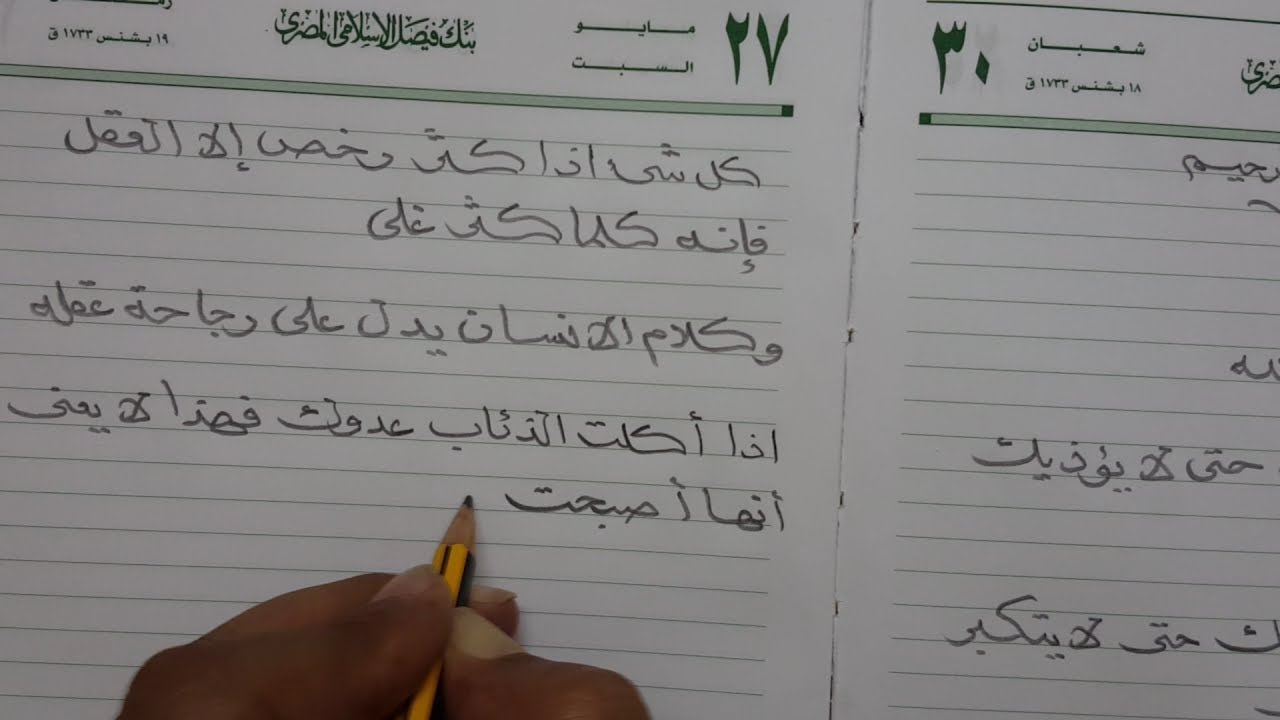 شعبان
٣٠
١٨ بشنس ١٧٣٣ ق
رحيم
حتى لا يؤذيك
ك حتى لا يتكبر
٢٧
مايو
السبت
بنك فيصل الإسلامي المصري
١٩ بشنس ١٧٣٣ ق
كل شىء اذا كثر رخص إلا العقل
فإنه كلما كثر غلى
وكلام الانسان يدل على رجاحة عقله
اذا أكلت الذئاب عدوك فهذا لا يعنى
أنها أصبحت